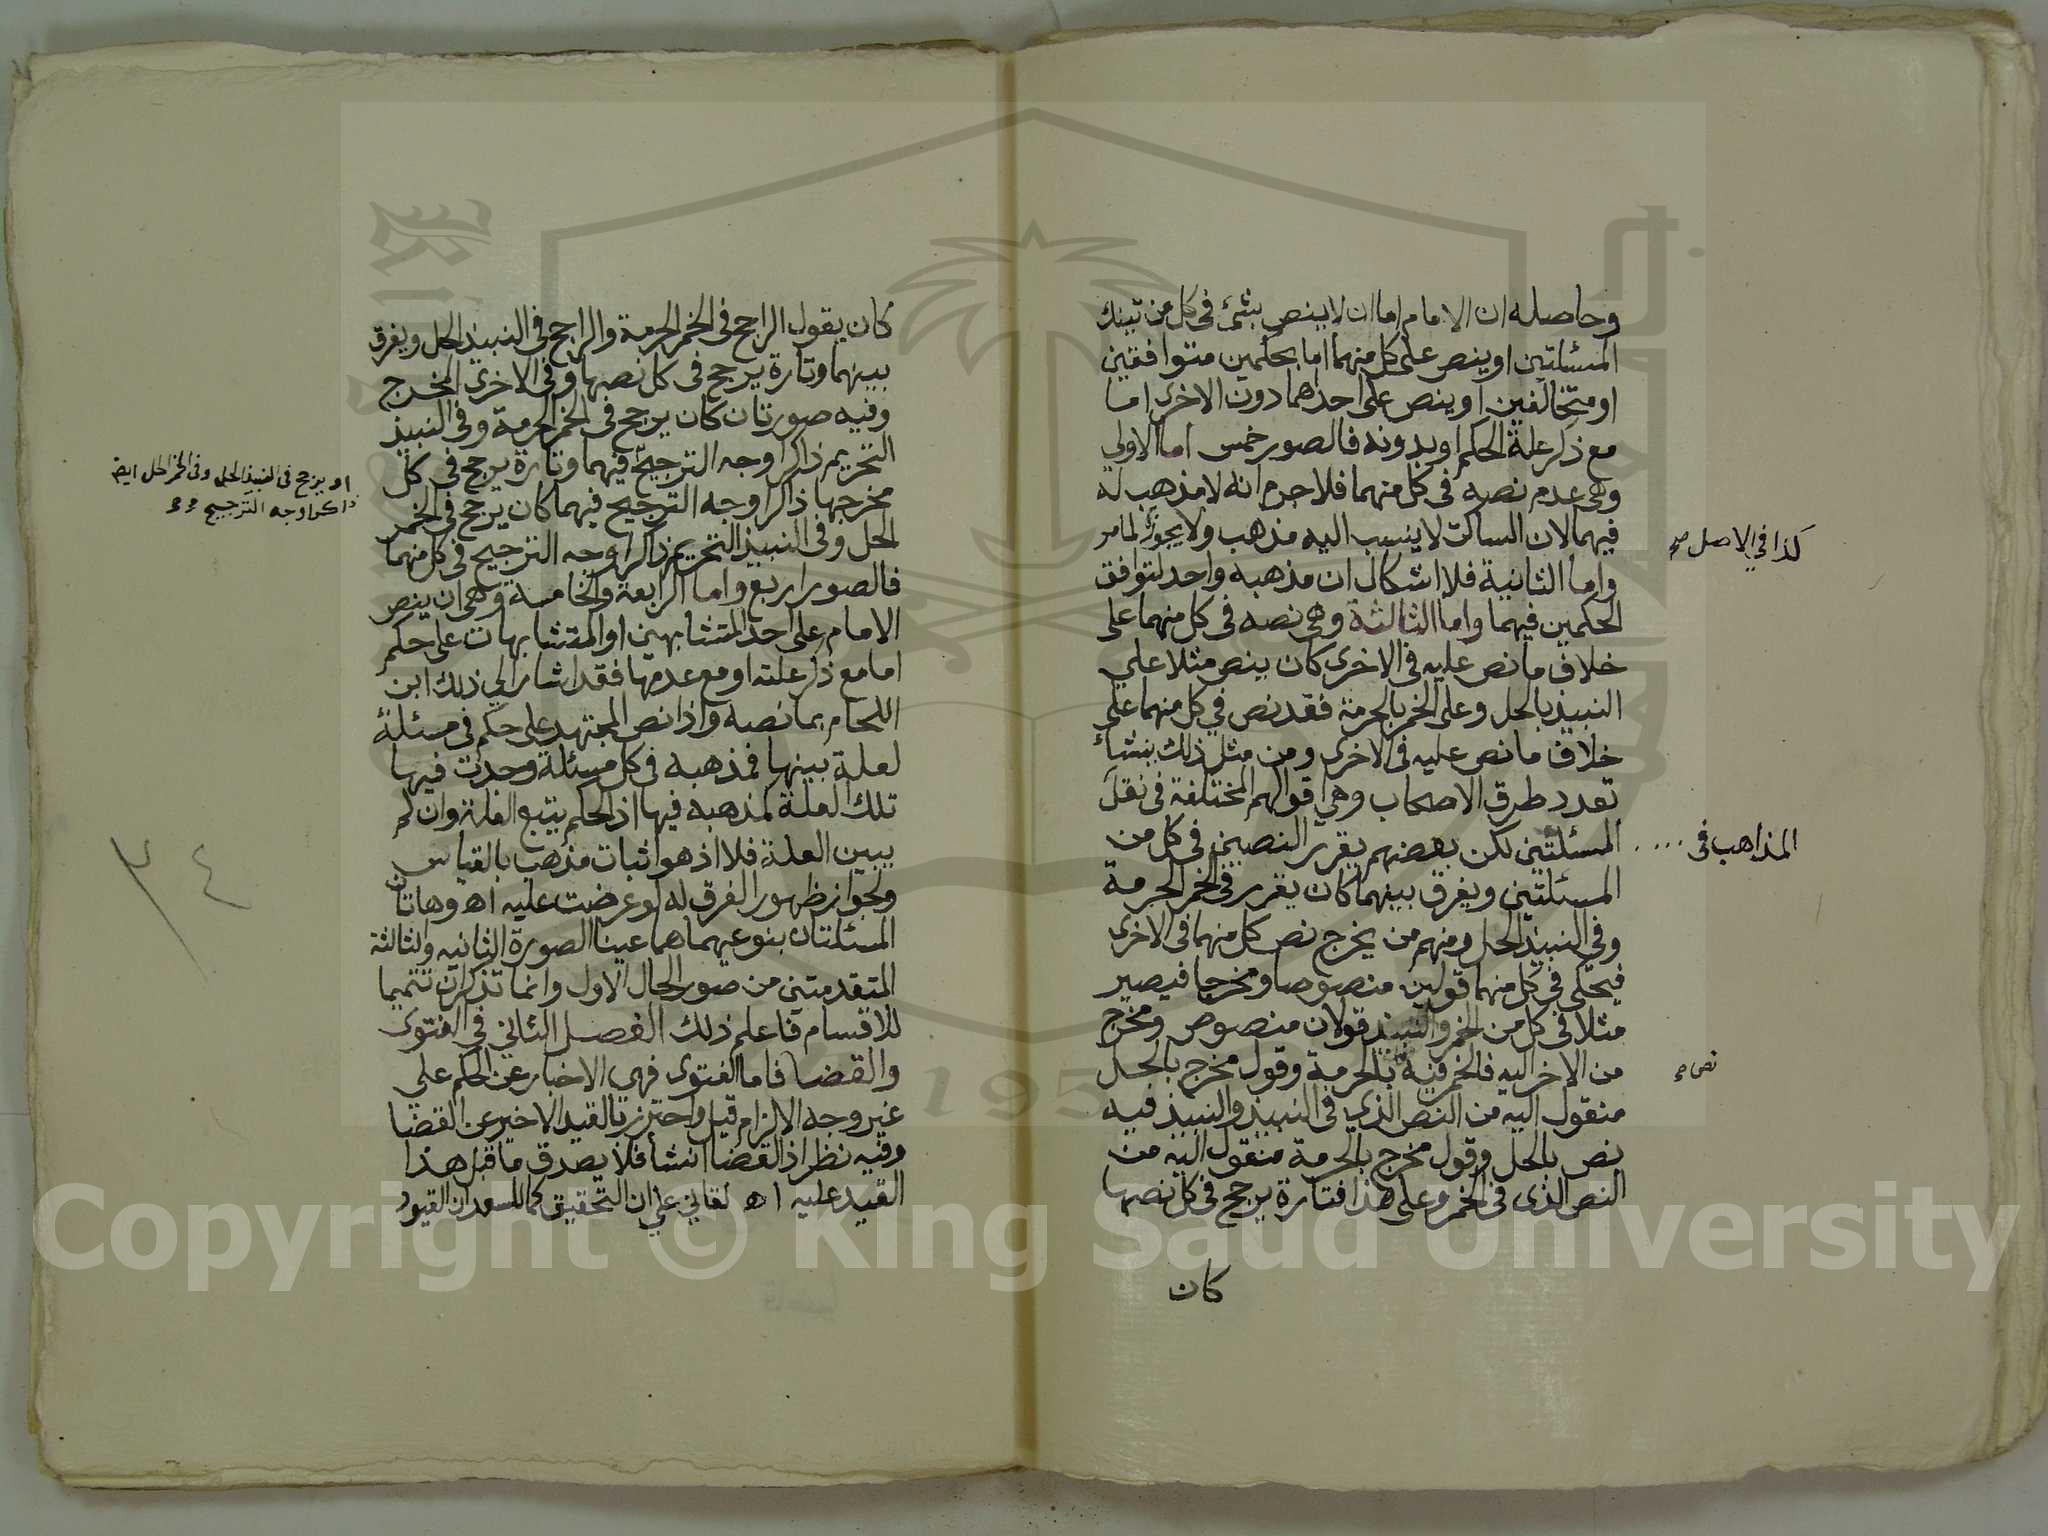 وحاصله ان الامام اما ان لا ينص بشئ فى كل من تينك
المسئلتين او ينص على كل منهما اما بحكمين متوافقين
او متخالفين او ينص على احداهما دون الاخرى اما
مع ذكر علة الحكم او بدونه فالصور خمس اما الاولي
وهي عدم نصه فى كل منهما فلا جرم انه لا مذهب له
فيهما لان الساكت لا ينسب اليه مذهب ولا يجوز لما مر
كذا في الاصل صح
واما الثانية فلا اشكال ان مذهبه واحد لتوافق
الحكمين فيهما واما الثالثة وهي نصه فى كل منهما على
خلاف ما نص عليه فى الاخرى كان ينص مثلا علي
النبيذ بالحل وعلى الخمر بالحرمة فقد نص في كل منهما على
خلاف ما نص عليه فى الاخرى ومن مثل ذلك ينشاء
تعدد طرق الاصحاب وهي اقوالهم المختلفة فى نقل
المذاهب فى .... المسئلتين لكن بعضهم يقرر النصين فى كل من
المسئلتين ويفرق بينهما كان يقرر فى الخمر الحرمة
وفى النبيذ الحل ومنهم من يخرج نص كل منهما فى الاخرى
فيحكى فى كل منهما قولين منصوصا ومخرجا فيصير
مثلا فى كل من الخمر والنبيذ قولان منصوص ومخرج
من الاخر اليه فالخمر فيه بالحرمة وقول مخرج بالحل
نص صح
منقول اليه من النص الذي فى النبيذ والنبيذ فيه
نص بالحل وقول مخرج بالحرمة منقول اليه من
النص الذى فى الخمر وعلى هذا فتارة يرجح فى كل نصها
كان
كان يقول الراجح فى الخمر الحرمة والراجح فى النبيذ الحل ويفرق
بينهما وتارة يرجح فى كل نصها وفى الاخرى المخرج
وفيه صورتان كان يرجح فى الخمر الحرمة وفى النبيذ
التحريم ذاكرا وجه الترجيح فيهما وتارة يرجح فى كل
او يرجح فى النبيذ الحل وفى الخمر الحل ايضا
ذاكرا وجه الترجيح
مخرجها ذاكرا وجه الترجيح فيهما كان يرجح فى الخمر
الحل وفى النبيذ التحريم ذاكرا وجه الترجيح فى كل منهما
فالصور اربع واما الرابعة والخامسة وهى ان ينص
الامام على احد المتشابهين او المتشابهات على حكم
اما مع ذكر علته او مع عدمها فقد اشار الي ذلك ابن
اللحام بما نصه واذا نص المجتهد على حكم فى مسئلة
لعلة بينها فمذهبه فى كل مسئلة وجدت فيها
تلك العلة كمذهبه فيها اذ الحكم يتبع العلة وان لم
يبين العلة فلا اذ هو اثبات مذهب بالقياس
ولجواز ظهور الفرق له لو عرضت عليه اه وهاتان
المسئلتان بنوعيهما هما عينا الصورة الثانيه والثالثة
المتقدمتين من صور الحال الاول وانما تذكران تتميما
للاقسام فاعلم ذلك الفصل الثاني في الفتوى
والقضا فاما الفتوى فهى الاخبار عن الحكم علي
غير وجه الالزام قيل واحترز بالقيد الاخير عن القضا
وفيه نظر اذ القضا انشأ فلا يصدق ما قبل هذا
القيد عليه اه لقاني على ان التحقيق كما للسعد ان القيود
٣٤